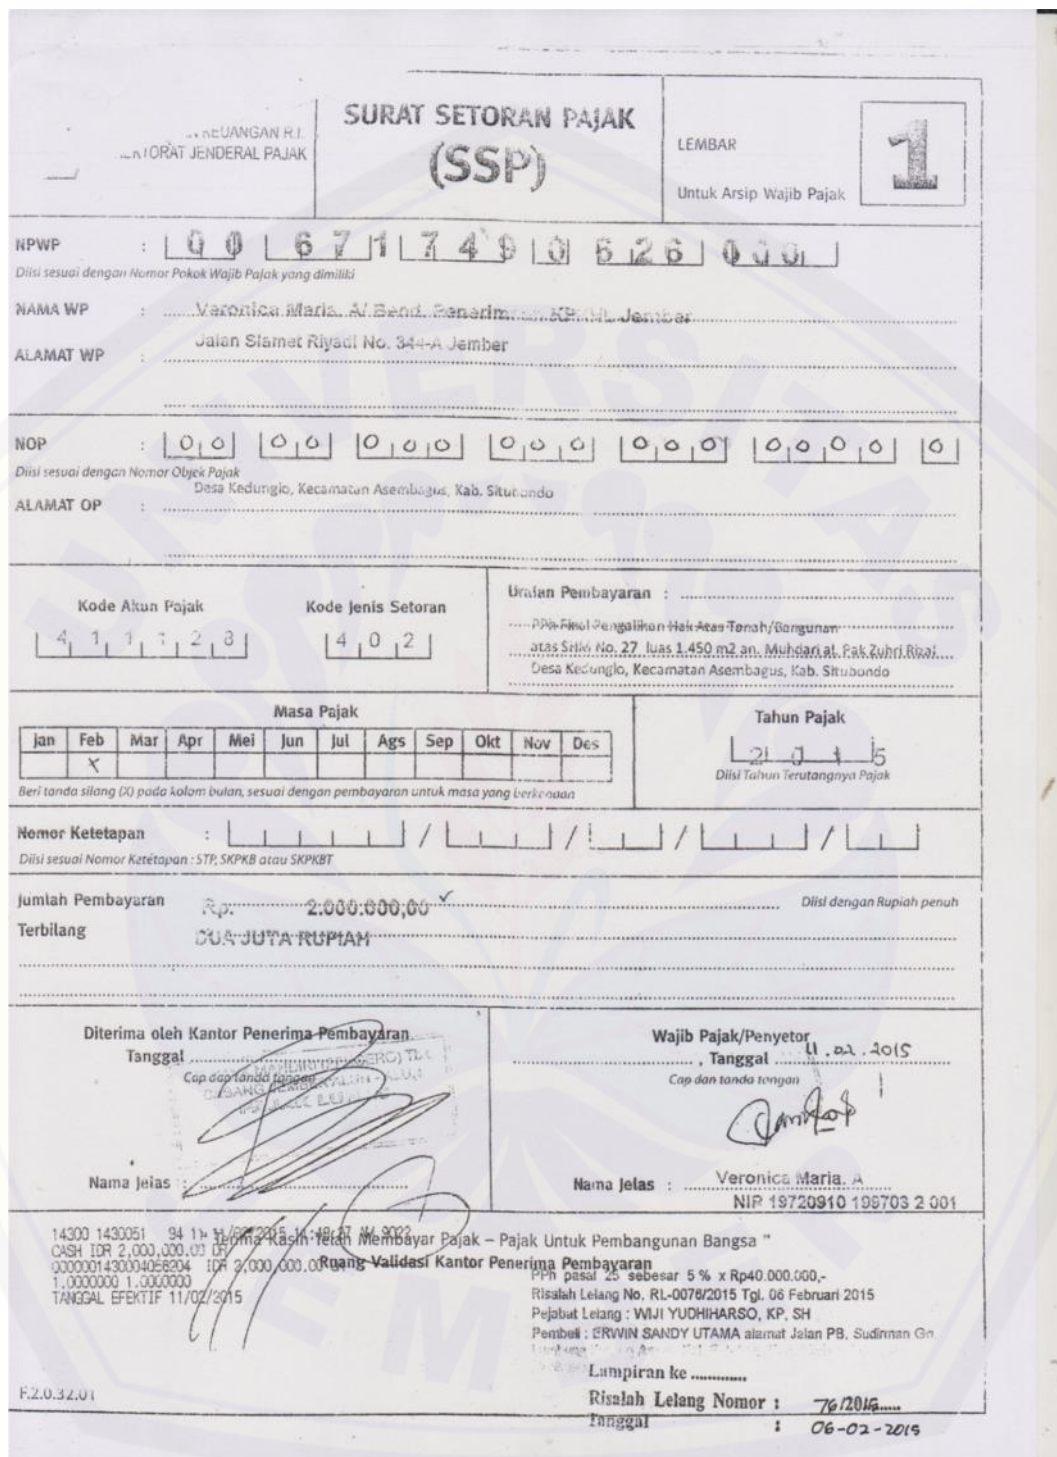 KEUANGAN R.I.
JENDERAL PAJAK
SURAT SETORAN PAJAK
(SSP)
LEMBAR
1
Untuk Arsip Wajib Pajak
NPWP : 00 671 749 0 626 000
Diisi sesuai dengan Nomor Pokok Wajib Pajak yang dimiliki
NAMA WP : Veronica Maria. A/ Bend. Jember
ALAMAT WP : Jalan Slamet Riyadi No. 344-A Jember
NOP : 00 00 000 000 000 0000 0
Diisi sesuai dengan Nomor Objek Pajak
ALAMAT OP : Desa Kedunglo, Kecamatan Asembagus, Kab. Situbondo
Kode Akun Pajak
411128
Kode Jenis Setoran
402
Uraian Pembayaran :
PPh Final Pengalihan Hak Atas Tanah/Bangunan
atas SHM No. 27 luas 1.450 m2 an. Muhdari al. Pak Zuhri Rizal
Desa Kedunglo, Kecamatan Asembagus, Kab. Situbondo
Masa Pajak
Jan Feb Mar Apr Mei Jun Jul Ags Sep Okt Nov Des
X
Beri tanda silang (X) pada kolom bulan, sesuai dengan pembayaran untuk masa yang berkenaan
Tahun Pajak
2015
Diisi Tahun Terutangnya Pajak
Nomor Ketetapan : / / / /
Diisi sesuai Nomor Ketetapan : STP, SKPKB atau SKPKBT
Jumlah Pembayaran Rp. 2.000.000,00 Diisi dengan Rupiah penuh
Terbilang DUA JUTA RUPIAH
Diterima oleh Kantor Penerima Pembayaran
Tanggal
Cap dan tanda tangan
Nama Jelas :
Wajib Pajak/Penyetor
, Tanggal 11.02.2015
Cap dan tanda tangan
Nama Jelas : Veronica Maria. A
NIP 19720910 199703 2 001
" Terima Kasih Telah Membayar Pajak – Pajak Untuk Pembangunan Bangsa "
Ruang Validasi Kantor Penerima Pembayaran
14300 1430051 94
CASH IDR 2,000,000.00 DR
0000001430004058204 IDR 2,000,000.00
1.0000000 1.0000000
TANGGAL EFEKTIF 11/02/2015
PPh pasal 25 sebesar 5 % x Rp40.000.000,-
Risalah Lelang No. RL-0076/2015 Tgl. 06 Februari 2015
Pejabat Lelang : WIJI YUDHIHARSO, KP, SH
Pembeli : ERWIN SANDY UTAMA alamat Jalan PB. Sudirman Gn
Lampiran ke
Risalah Lelang Nomor : 76/2015
Tanggal : 06-02-2015
F.2.0.32.01
UNIVERSITAS
JEMBER